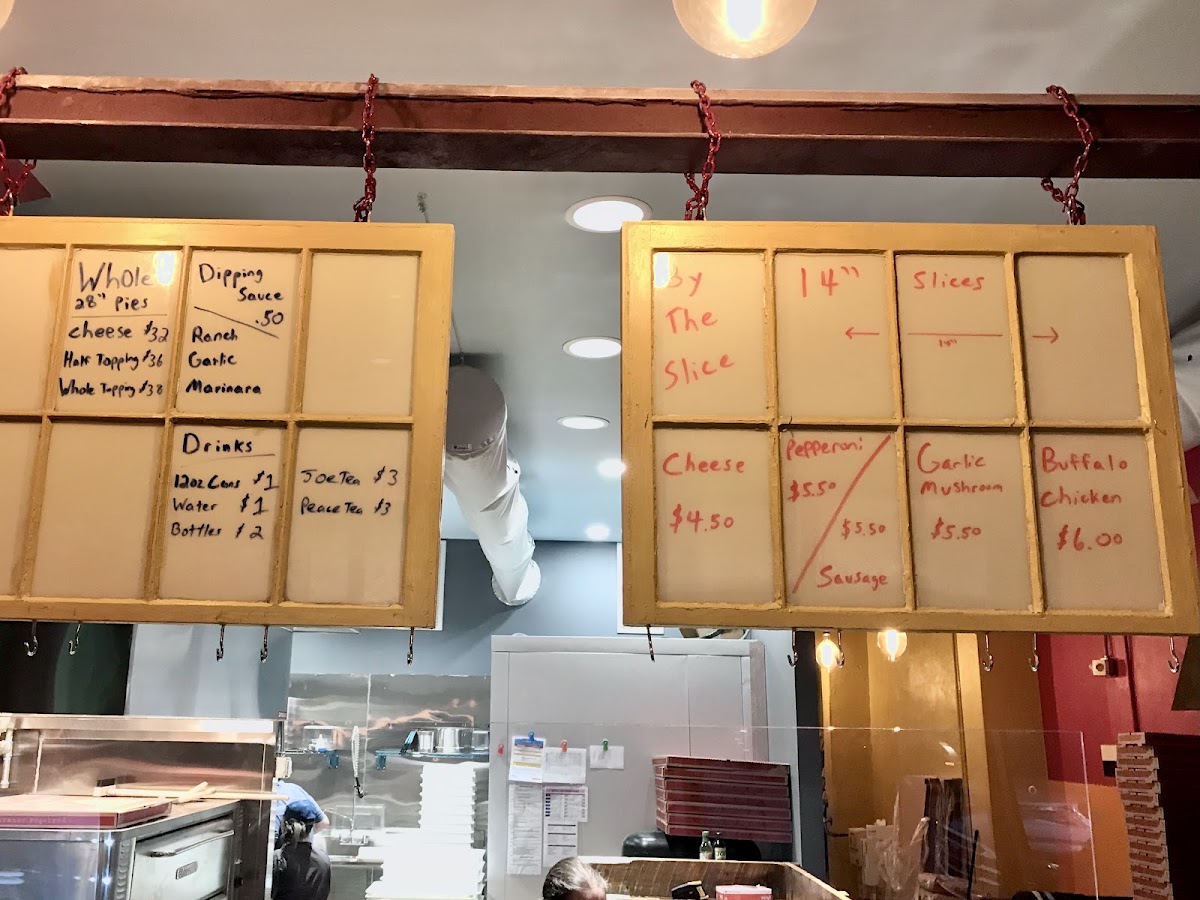 Whole
28" Pies
cheese $32
Half Topping $36
Whole Topping $38
Dipping
Sauce
.50
Ranch
Garlic
Marinara
Drinks
12oz Cans $1
Water $1
Bottles $2
Joe Tea $3
Peace Tea $3
By
The
Slice
14"
Slices
14"
Cheese
$4.50
Pepperoni
$5.50
$5.50
Sausage
Garlic
Mushroom
$5.50
Buffalo
Chicken
$6.00